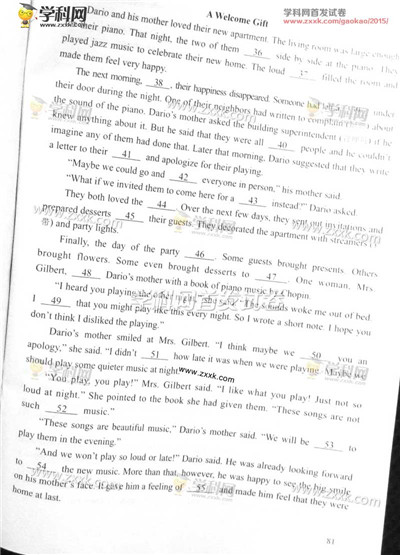 学科网首发试卷
www.zxxk.com/gaokao/2015/
A Welcome Gift
Dario and his mother loved their new apartment. The living room was large enough
their piano. That night, the two of them 36 side by side at the piano. They
played jazz music to celebrate their new home. The loud 37 filled the room and
made them feel very happy.
The next morning, 38, their happiness disappeared. Someone had left under
their door during the night. One of their neighbors had written to complain about
the sound of the piano. Dario's mother asked the building superintendent if
knew anything about it. But he said that they were all 40 people and he couldn't
imagine any of them had done that. Later that morning, Dario suggested that they write
a letter to their 41 and apologize for their playing.
"Maybe we could go and 42 everyone in person," his mother said.
"What if we invited them to come here for a 43 instead?" Dario asked.
They both loved the 44. Over the next few days, they sent out invitations and
prepared desserts 45 their guests. They decorated the apartment with streamers
) and party lights.
Finally, the day of the party 46. Some guests brought presents. Others
brought flowers. Some even brought desserts to 47. One woman, Mrs.
Gilbert, 48 Dario's mother with a book of piano music by Chopin.
"I heard you playing the night," she said. "The sounds woke me out of bed.
I 49 that you might play like this every night. So I wrote a short note. I hope you
don't think I disliked the playing."
Dario's mother smiled at Mrs. Gilbert. "I think maybe we 50 you an
apology," she said. "I didn't 51 how late it was when we were playing. Maybe we
should play some quieter music at night."
"You play, you play!" Mrs. Gilbert said. "I like what you play! Just not so
loud at night." She pointed to the book she had given them. "These songs are not
such 52 music."
"These songs are beautiful music," Dario's mother said. "We will be 53 to
play them in the evening."
"And we won't play so loud or late!" Dario said. He was already looking forward
to 54 the new music. More than that, however, he was happy to see the big smile
on his mother's face. It gave him a feeling of 55 and made him feel that they were
home at last.
81
学科网
www.zxxk.com
学科网首发试卷